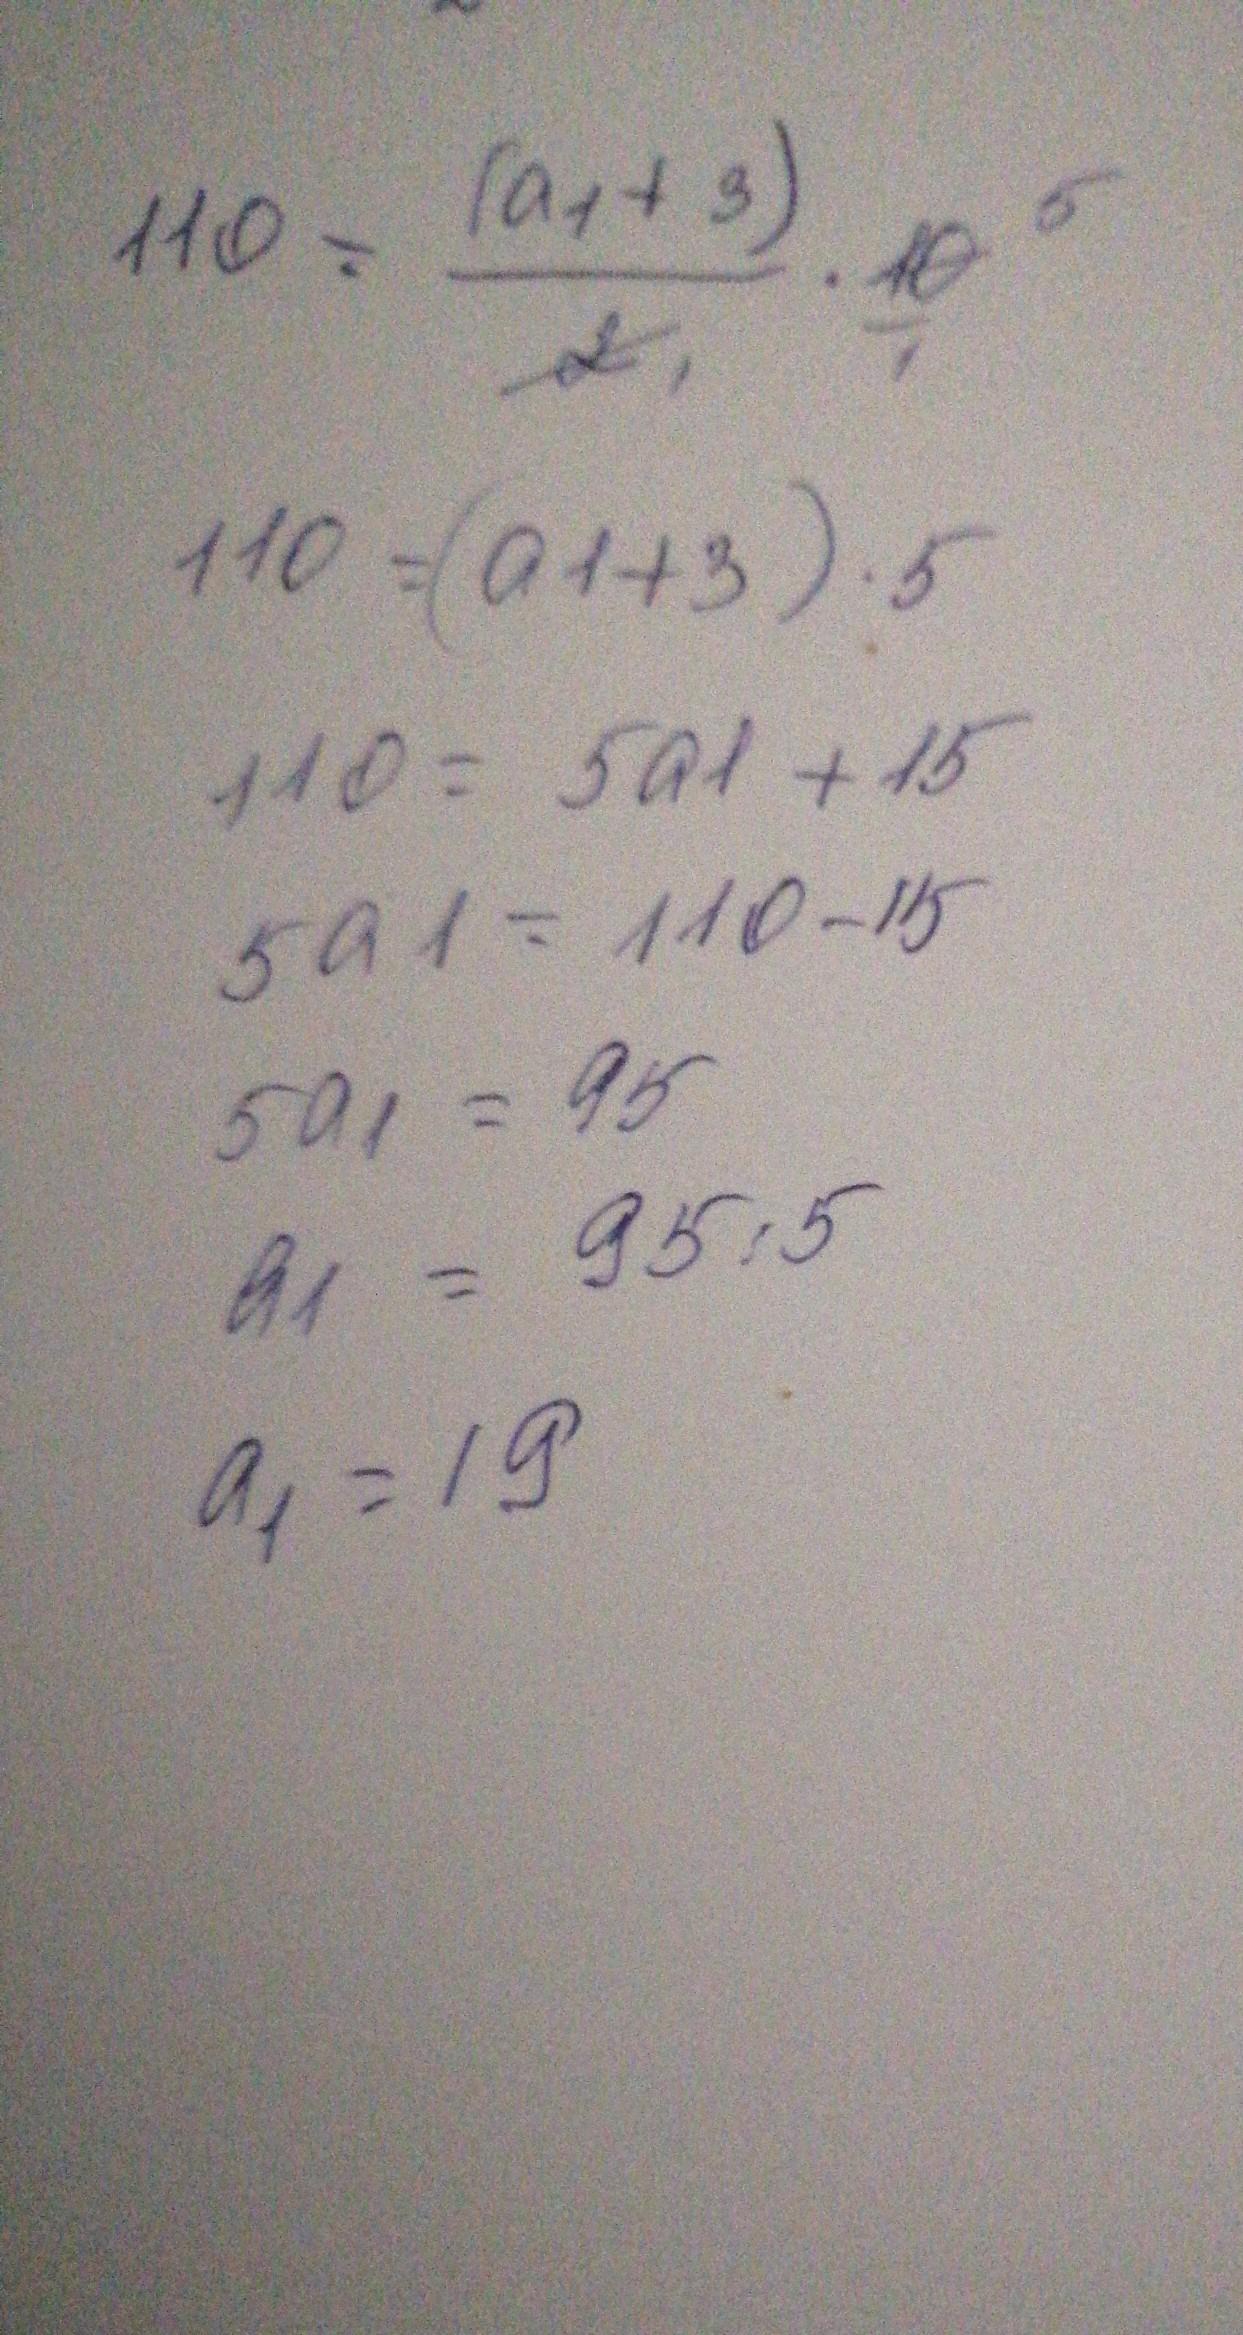 110 = (a₁ + 3) / 2, · 10/1 5
110 = (a1 + 3) · 5
110 = 5a1 + 15
5a1 = 110 - 15
5a₁ = 95
a₁ = 95 : 5
a₁ = 19